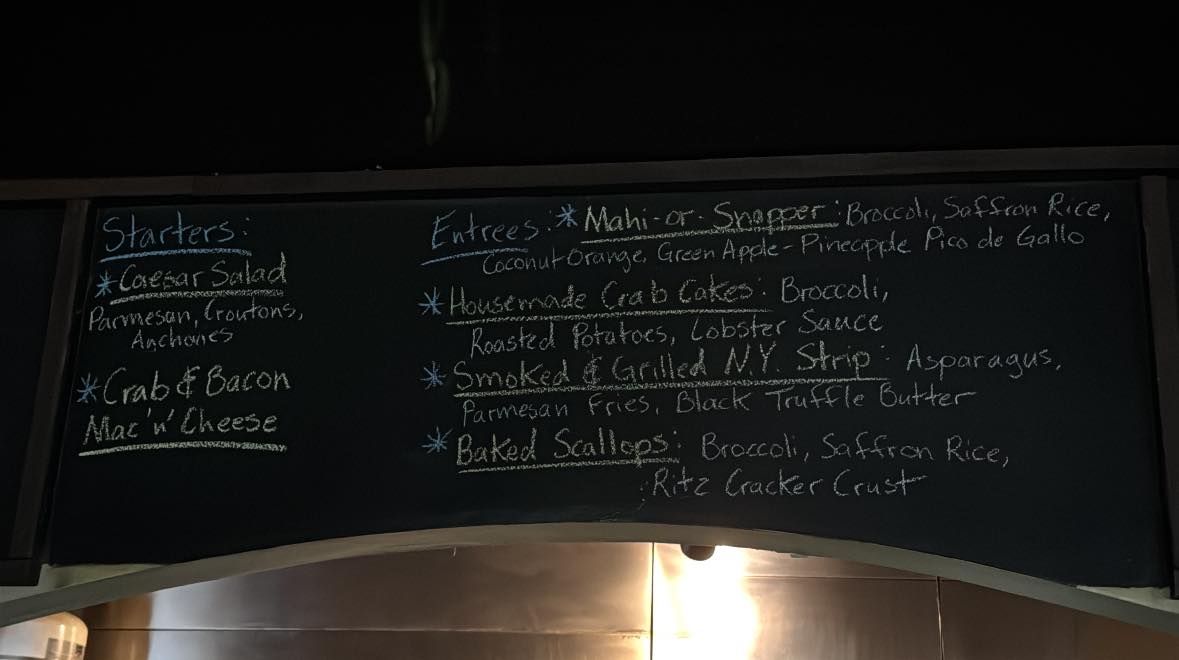 Starters:
*Caesar Salad
Parmesan, Croutons,
Anchovies
*Crab & Bacon
Mac 'n' Cheese
Entrees: *Mahi-or-Snapper: Broccoli, Saffron Rice,
Coconut Orange, Green Apple-Pineapple Pico de Gallo
*Housemade Crab Cakes: Broccoli,
Roasted Potatoes, Lobster Sauce
*Smoked & Grilled N.Y. Strip: Asparagus,
Parmesan Fries, Black Truffle Butter
*Baked Scallops: Broccoli, Saffron Rice,
Ritz Cracker Crust